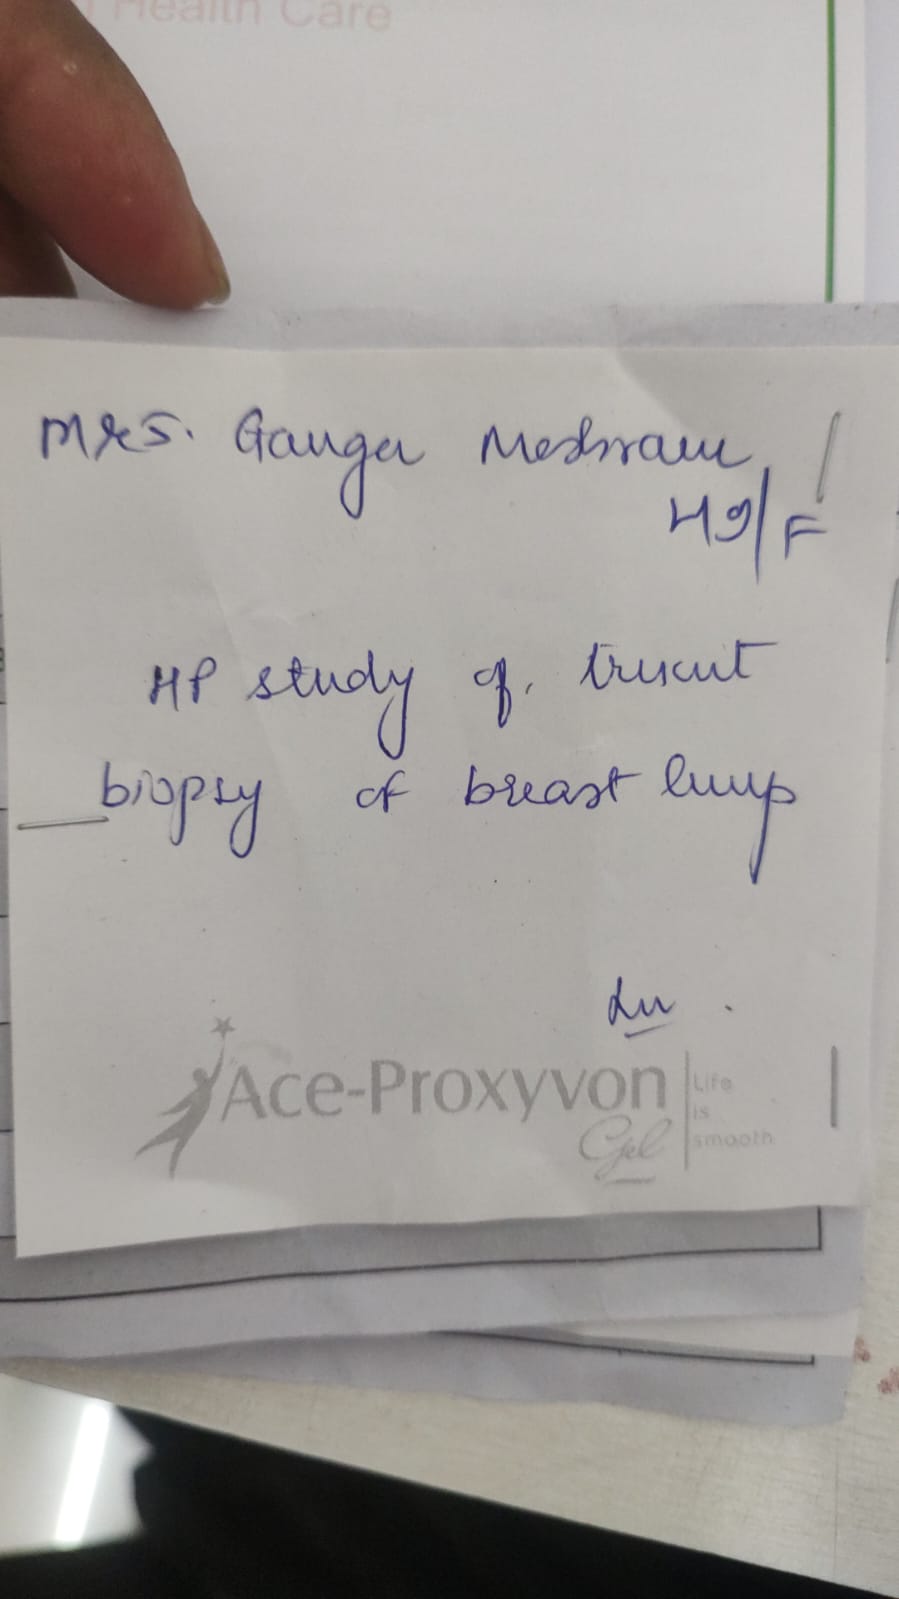 Health Care
Mrs. Ganga Meshram
49/F
HP study of trucut
biopsy of breast lump
Ace-Proxyvon
Gel
Life
is
smooth